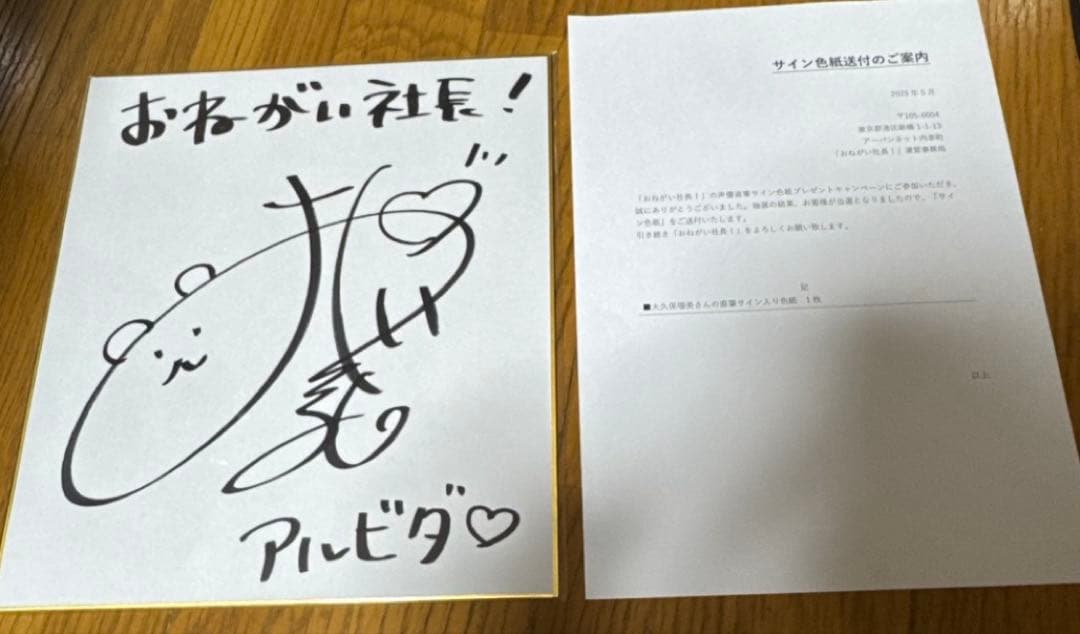 おねがい社長!
アルビダ♡
サイン色紙送付のご案内
2023年5月
〒105-0004
東京都港区新橋1-1-13
アーバンネット内幸町
「おねがい社長!」運営事務局
「おねがい社長!」の声優直筆サイン色紙プレゼントキャンペーンにご参加いただき、
誠にありがとうございました。抽選の結果、お客様が当選となりましたので、「サイ
ン色紙」をご送付いたします。
引き続き「おねがい社長!」をよろしくお願い致します。
記
■大久保瑠美さんの直筆サイン入り色紙 1枚
以上